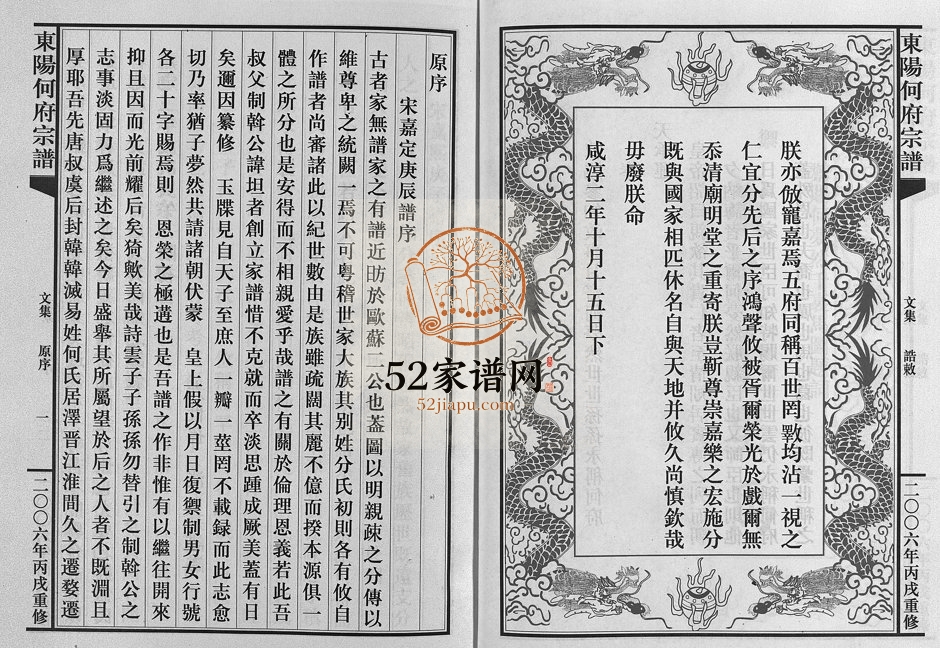 東陽何府宗譜
文集
誥敕
二〇〇六年丙戌重修
朕亦倣寵嘉焉五府同稱百世罔斁均沾一視之
仁宜分先后之序鴻聲攸被胥爾榮光於戲爾無
忝清廟明堂之重寄朕豈靳尊崇嘉樂之宏施分
既與國家相匹休名自與天地并攸久尚慎欽哉
毋廢朕命
咸淳二年十月十五日下
原序
宋嘉定庚辰譜序
古者家無譜家之有譜近昉於歐蘇二公也葢圖以明親疎之分傳以
維尊卑之統闕一焉不可粵稽世家大族其别姓分氏初則各有攸自
作譜者尚審諸此以紀世數由是族雖疏闊其麗不億而揆本源俱一
體之所分也是安得而不相親愛乎哉譜之有關於倫理恩義若此吾
叔父制斡公諱坦者創立家譜惜不克就而卒淡思踵成厥美蓋有日
矣邇因纂修 玉牒見自天子至庶人一瓣一莖罔不載録而此志愈
切乃率猶子夢然共請諸朝伏蒙 皇上假以月日復禦制男女行號
各二十字賜焉則 恩榮之極遘也是吾譜之作非惟有以繼往開來
抑且因而光前耀后矣猗歟美哉詩雲子子孫孫勿替引之制斡公之
志事淡固力爲繼述之矣今日盛舉其所屬望於后之人者不既淵且
厚耶吾先唐叔虞后封韓韓滅易姓何氏居澤晋江淮間久之遷婺遷
東陽何府宗譜
文集
原序
一
二〇〇六年丙戌重修
52家谱网
52jiapu.com